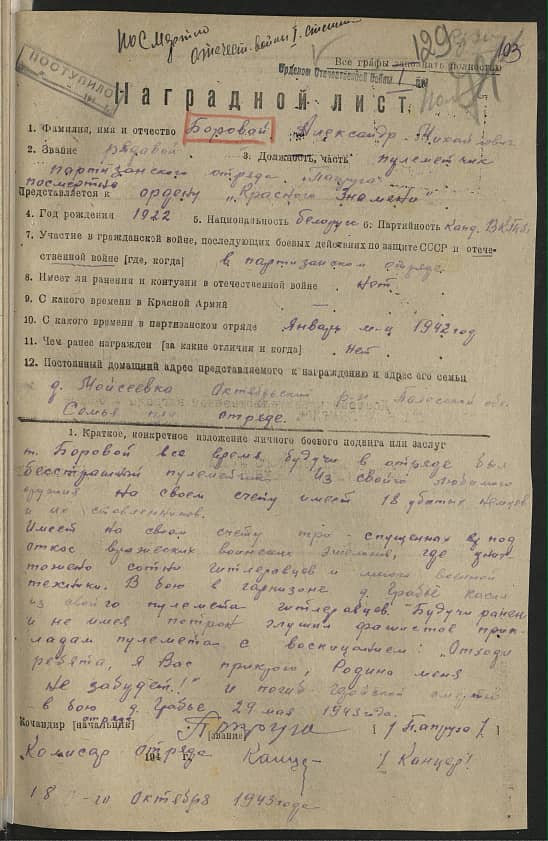 посмертно
отечест. войны I степени
129
103
ПОСТУПИЛО
Все графы заполнять полностью
Орденом Отечественной Войны I ст
Наградной лист
1. Фамилия, имя и отчество Боровой Александр Михайлович
2. Звание рядовой 3. Должность, часть пулеметчик
партизанского отряда
посмертно
Представляется к ордену „Красного Знамени"
4. Год рождения 1922 5. Национальность белорус 6. Партийность канд. ВКП(б)
7. Участие в гражданской войне, последующих боевых действиях по защите СССР и отече-
ственной войне [где, когда] в партизанском отряде.
8. Имеет ли ранения и контузии в отечественной войне Нет
9. С какого времени в Красной Армии —
10. С какого времени в партизанском отряде Январь м-ц 1942 год
11. Чем ранее награжден [за какие отличия и когда] Нет
12. Постоянный домашний адрес представляемого к награждению и адрес его семьи
д. Мойсеевка Октябрьский р-н Полесской обл.
Семья при отряде.
1. Краткое, конкретное изложение личного боевого подвига или заслуг
т. Боровой все время будучи в отряде был
бесстрашный пулеметчик. Из своего любимого
оружия на своем счету имеет 18 убитых немцев
и их ставленников.
Имеет на своем счету три спущенных под
откос вражеских воинских эшелона, где унич
тожено сотни гитлеровцев и много военной
техники. В бою в гарнизоне д. Грабье косил
из своего пулемета гитлеровцев. Будучи ранен
и не имея патрон глушил фашистов прик-
ладам пулемета с воскицанием: „Отходи
ребята, я Вас прикрою, Родина меня
не забудет!" и погиб геройской смертью
в бою д. Грабье 29 мая 1943 года.
Командир [начальник] отряда [звание] [Папруга]
194 г.
Комисар отряда [Канцер]
18 го Октября 1943 года